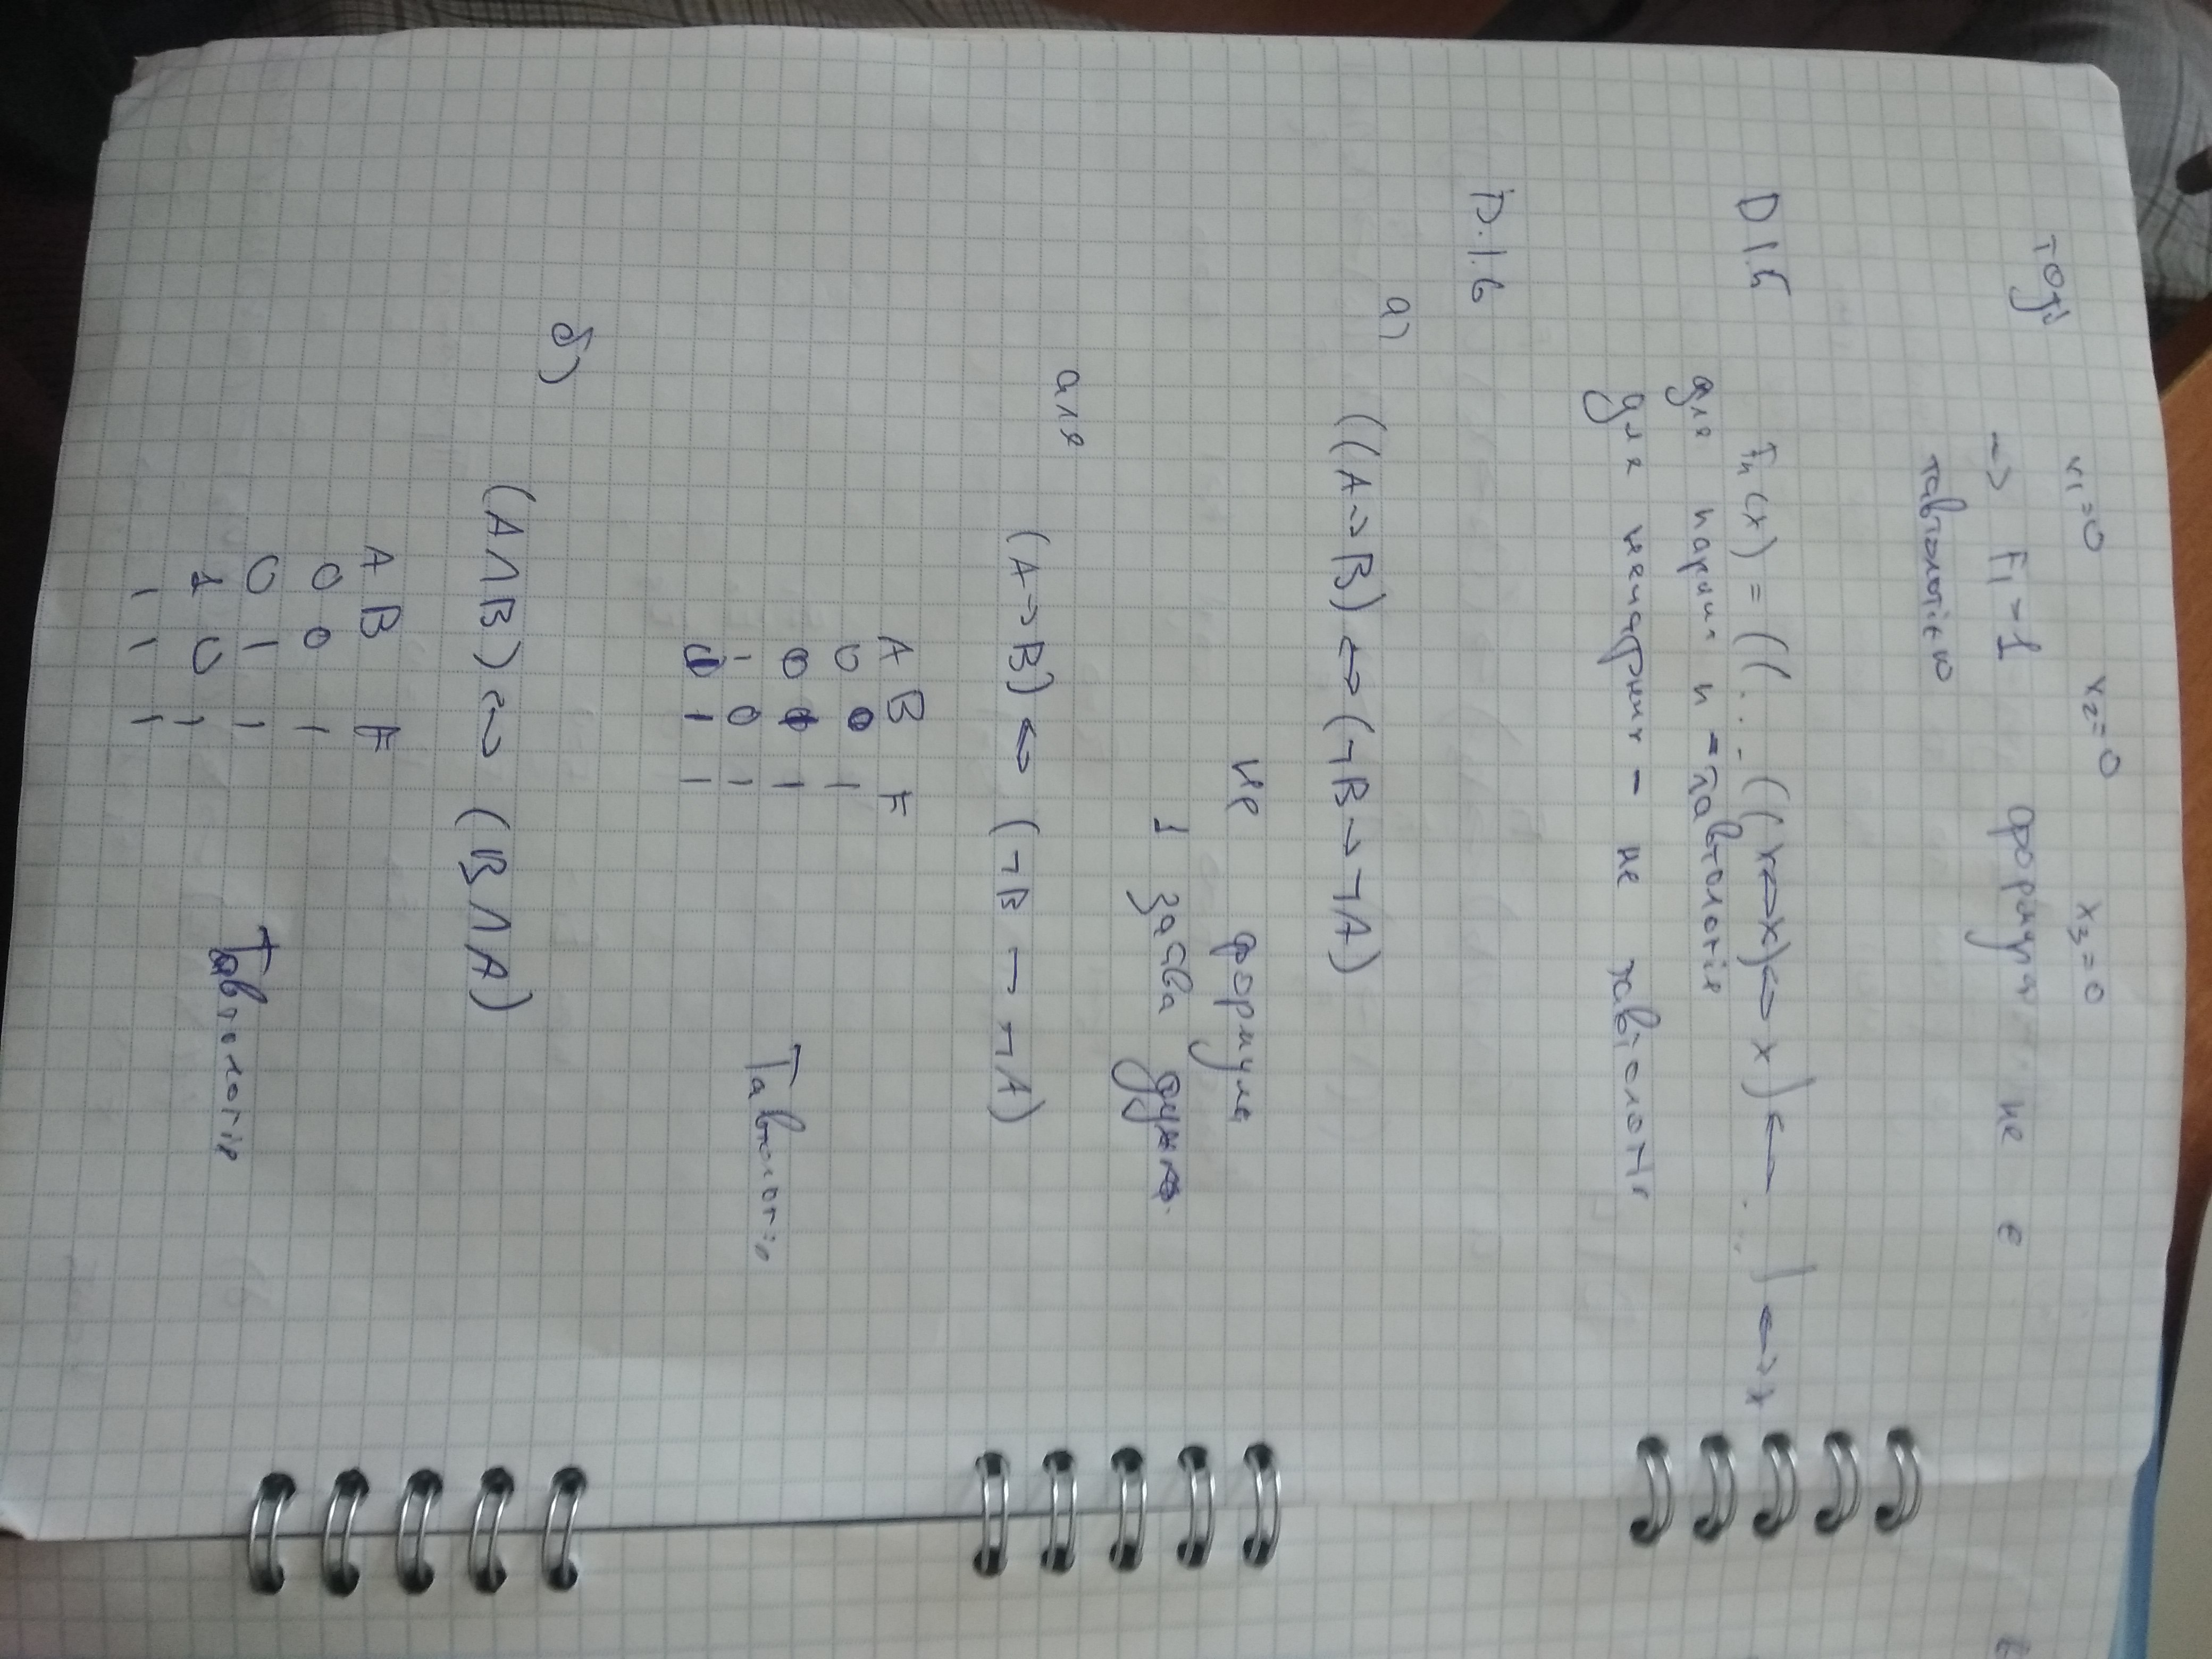 x₁=0 x₂=0 x₃=0
тоді
→ F₁→1 формула не є
тавтологією
D 1.5 Tₙ(x) = ((...((x↔x)↔x)↔...)↔x
для парних n - тавтологія
для непарних - не тавтологія
D.1.6
а) ((A→B)↔(¬B→¬A)
не формула
1 зайва дужка.
але (A→B)↔(¬B→¬A)
A B F
0 0 1
0 1 1
1 0 1
1 1
Тавтологія
б) (A∧B)↔(B∧A)
A B F
0 0 1
0 1 1
1 0 1
1 1 1
Тавтологія